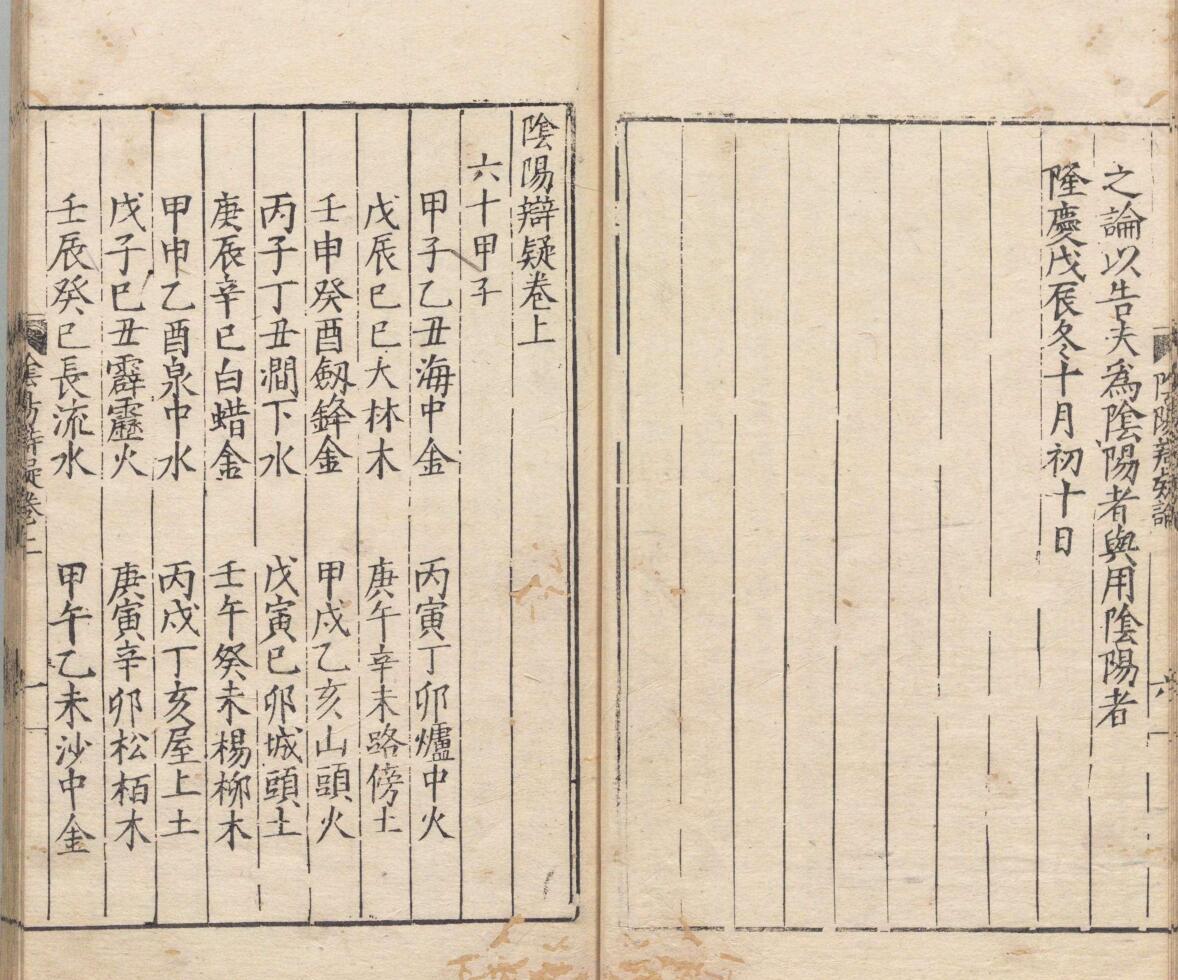 陰陽辯疑論
六
之論以告夫爲陰陽者與用陰陽者
隆慶戊辰冬十月初十日
陰陽辯疑卷上
六十甲子
甲子乙丑海中金　丙寅丁卯爐中火
戊辰巳巳大林木　庚午辛未路傍土
壬申癸酉劔鋒金　甲戌乙亥山頭火
丙子丁丑澗下水　戊寅巳卯城頭土
庚辰辛巳白蜡金　壬午癸未楊柳木
甲申乙酉泉中水　丙戌丁亥屋上土
戊子巳丑霹靂火　庚寅辛卯松栢木
壬辰癸巳長流水　甲午乙未沙中金
陰陽辯疑卷上
一